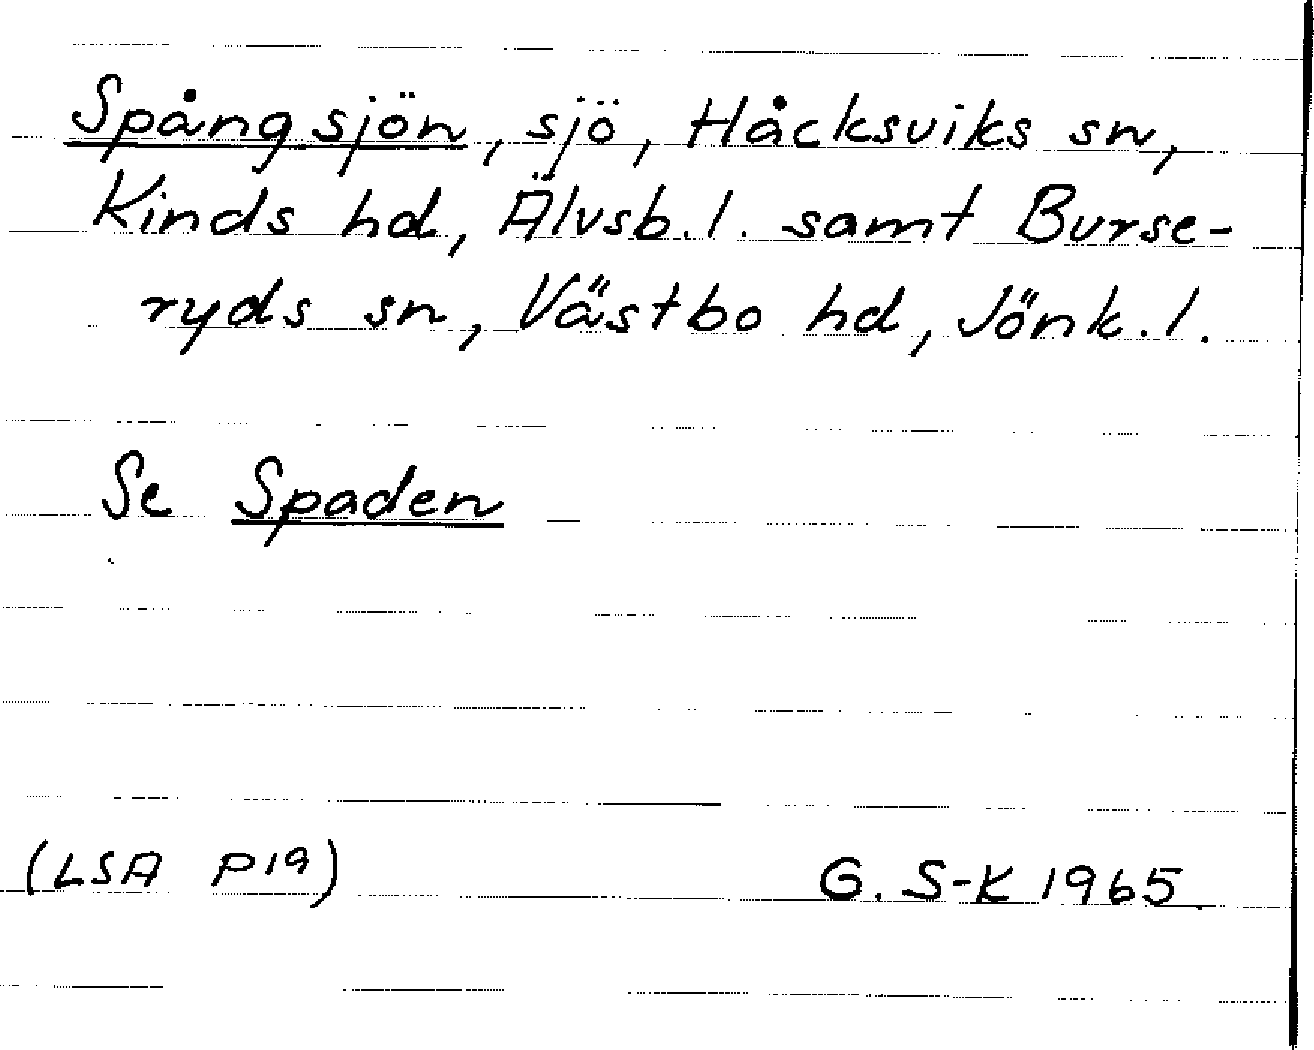 Spångsjön, sjö, Håcksviks sn,
Kinds hd, Älvsb.l. samt Burse-
ryds sn, Västbo hd, Jönk.l.
Se Spaden
(LSA P19) G. S-K 1965